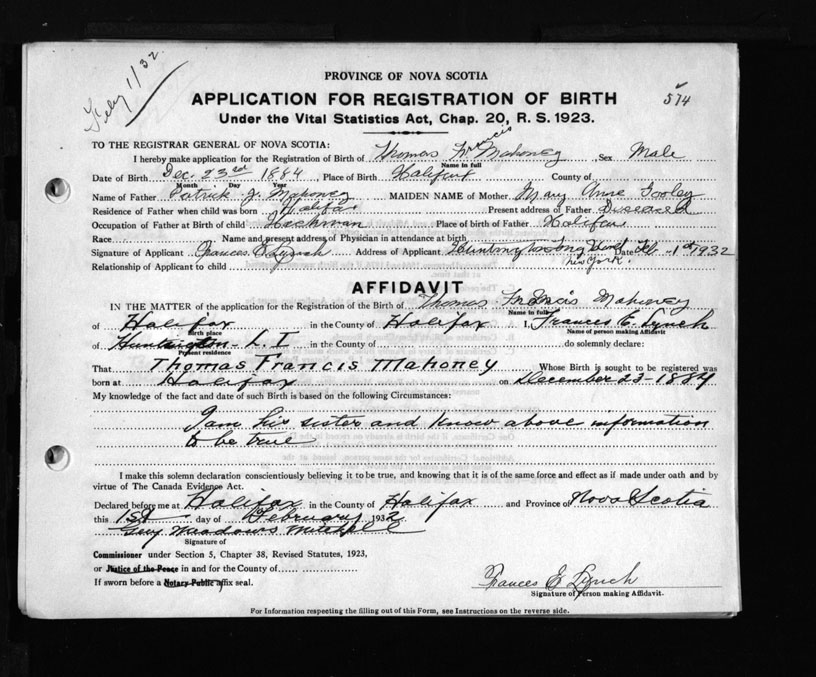 Feby 1/32
574
PROVINCE OF NOVA SCOTIA
APPLICATION FOR REGISTRATION OF BIRTH
Under the Vital Statistics Act, Chap. 20, R. S. 1923.
TO THE REGISTRAR GENERAL OF NOVA SCOTIA:
I hereby make application for the Registration of Birth of Thomas Francis Mahoney Sex Male
Name in full
Date of Birth Dec. 23rd 1884 Place of Birth Halifax County of
Month Day Year
Name of Father Patrick J. Mahoney MAIDEN NAME of Mother Mary Anne Tooley
Residence of Father when child was born Halifax Present address of Father Diseased
Occupation of Father at Birth of child Hackman Place of birth of Father Halifax
Race Name and present address of Physician in attendance at birth
Signature of Applicant Frances E Lynch Address of Applicant Huntington Long Island Date Feb - 1st 1932
New York.
Relationship of Applicant to child
AFFIDAVIT
IN THE MATTER of the application for the Registration of the Birth of Thomas Francis Mahoney
Name in full
of Halifax in the County of Halifax I, Frances E. Lynch
Birth place Name of Person making Affidavit
of Huntington - L. I in the County of do solemnly declare:
Present residence
That Thomas Francis Mahoney Whose Birth is sought to be registered was
born at Halifax on December 23 - 1884
My knowledge of the fact and date of such Birth is based on the following Circumstances:
I am his sister and know above information
to be true
I make this solemn declaration conscientiously believing it to be true, and knowing that it is of the same force and effect as if made under oath and by
virtue of The Canada Evidence Act.
Declared before me at Halifax in the County of Halifax and Province of Nova Scotia
this 1st day of February 1932
Guy Meadows Mitchell
Signature of
Commissioner under Section 5, Chapter 38, Revised Statutes, 1923,
or Justice of the Peace in and for the County of
If sworn before a Notary Public affix seal.
Frances E Lynch
Signature of Person making Affidavit.
For Information respecting the filling out of this Form, see Instructions on the reverse side.